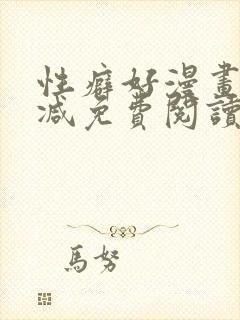 性癖好漫畫
减免費閱讀
馬努